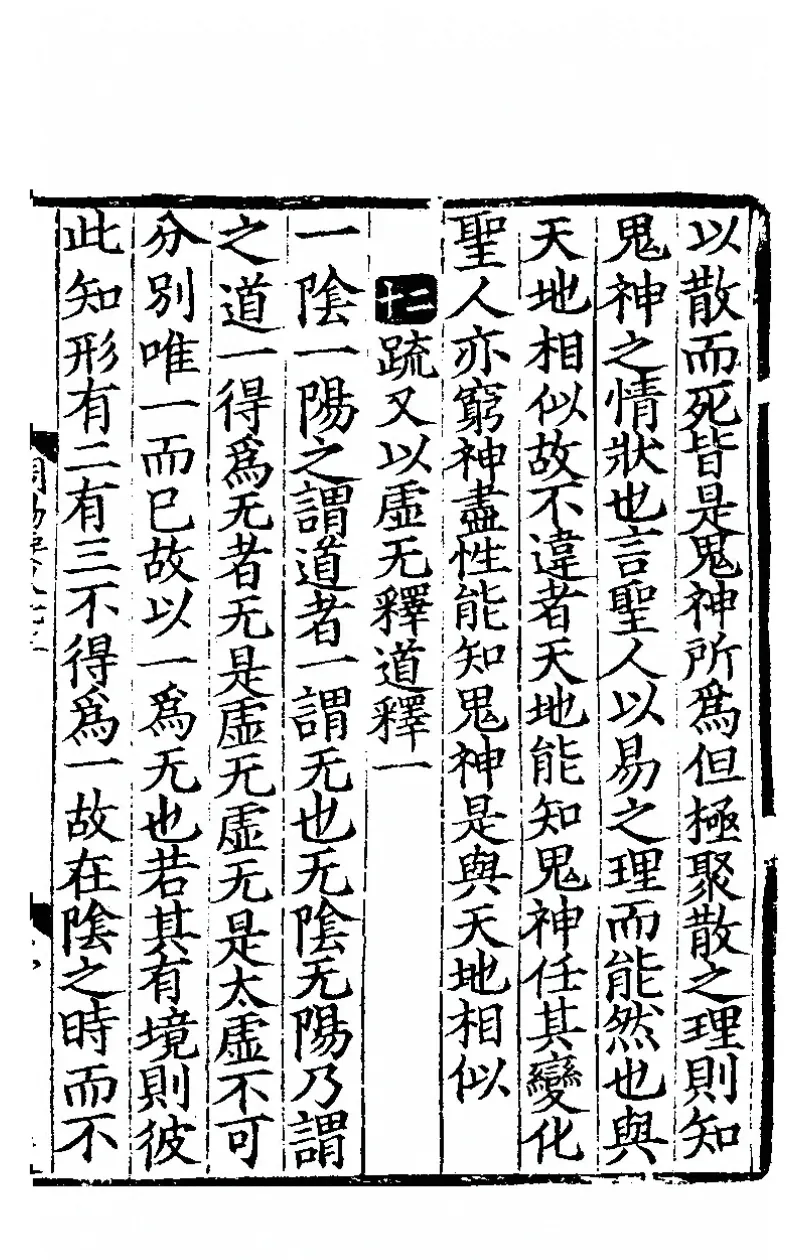 以散而死皆是鬼神所爲但極聚散之理則知
鬼神之情狀也言聖人以易之理而能然也與
天地相似故不違者天地能知鬼神任其變化
聖人亦窮神盡性能知鬼神是與天地相似
十二疏又以虛无釋道釋一
一陰一陽之謂道者一謂无也无陰无陽乃謂
之道一得爲无者无是虛无虛无是太虛不可
分別唯一而已故以一爲无也若其有境則彼
此知形有二有三不得爲一故在陰之時而不